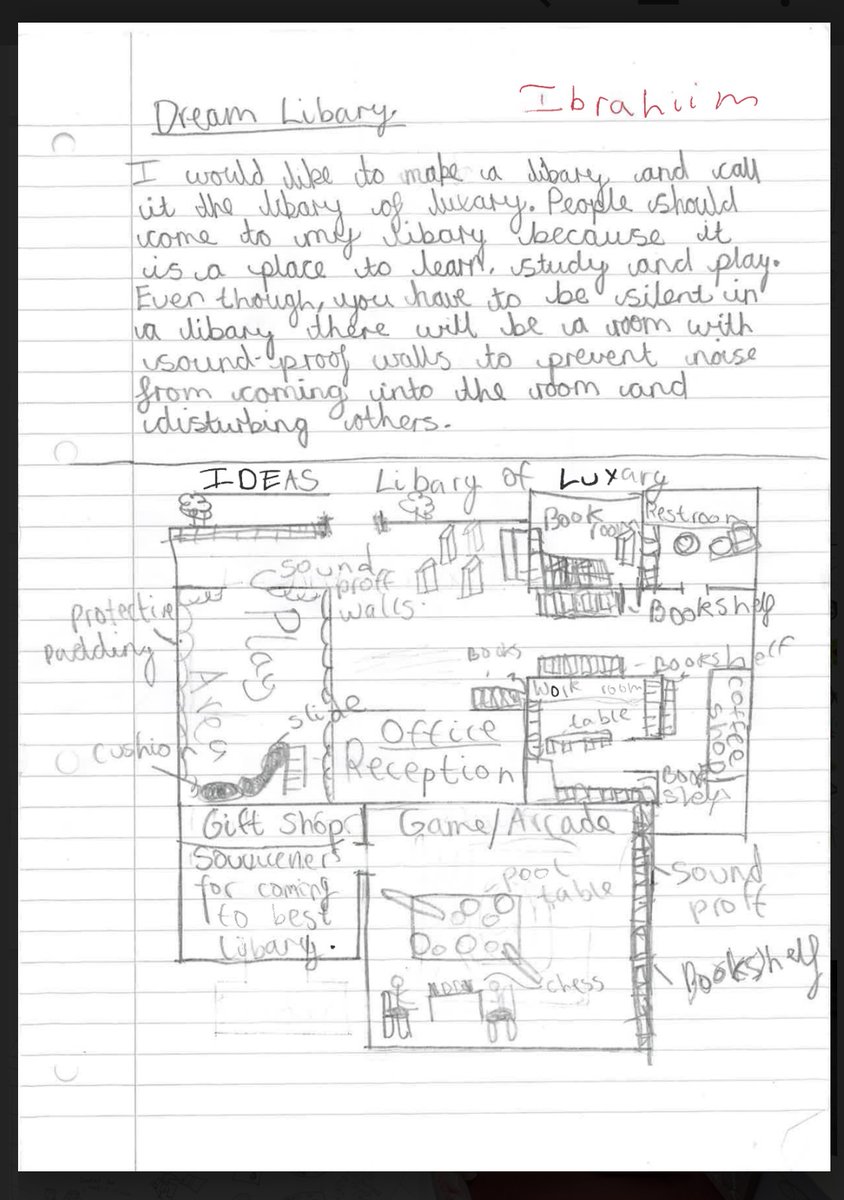 Ibrahiim
Dream Libary.
I would like to make a libary and call
it the libary of luxary. People should
come to my libary because it
is a place to learn, study and play.
Even though, you have to be silent in
a libary there will be a room with
sound-proof walls to prevent noise
from coming into the room and
disturbing others.
IDEAS
Libary of Luxary
Book
room
Restroom
Sound
proff
walls.
Protective
padding
Play
Area
Bookshelf
Books
Bookshelf
Work room
table
Coffee
shop
slide
Cushion
Office
Reception
Book
Gift Shop
Game/Arcade
for coming
to best
Libary.
pool
table
Sound
proff
chess
Bookshelf